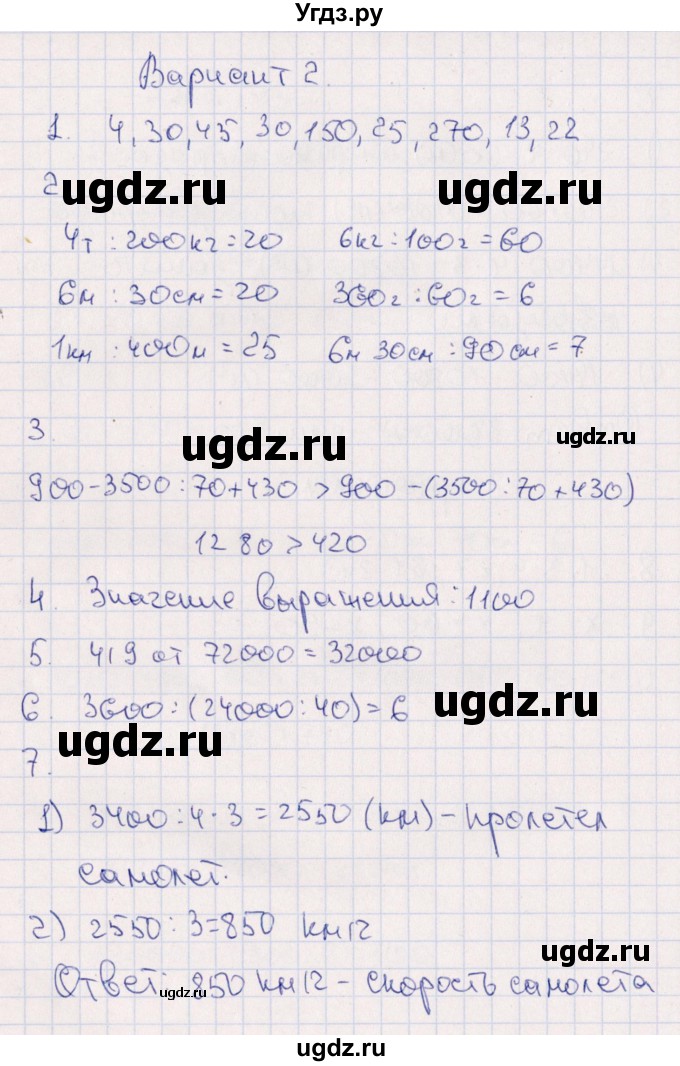 Угдз.ру
Вариант 2.
1. 4, 30, 45, 30, 150, 25, 270, 13, 22
2
ugdz.ru ugdz.ru
4т : 200кг = 20 6кг : 100г = 60
6м : 30см = 20 360г : 60г = 6
1км : 400м = 25 6м 30см : 90см = 7
3.
ugdz.ru ugdz.ru
900-3500:70+430 > 900-(3500:70+430)
1280 > 420
4. Значение выражения: 1100
5. 4/9 от 72000 = 32000
6. 3600:(24000:40) = 6 ugdz.ru
ugdz.ru
7.
1) 3400:4·3 = 2550 (км) - пролетел
самолет.
2) 2550:3=850 км/г
ugdz.ru
Ответ: 850 км/г - скорость самолета
ugdz.ru
ugdz.ru